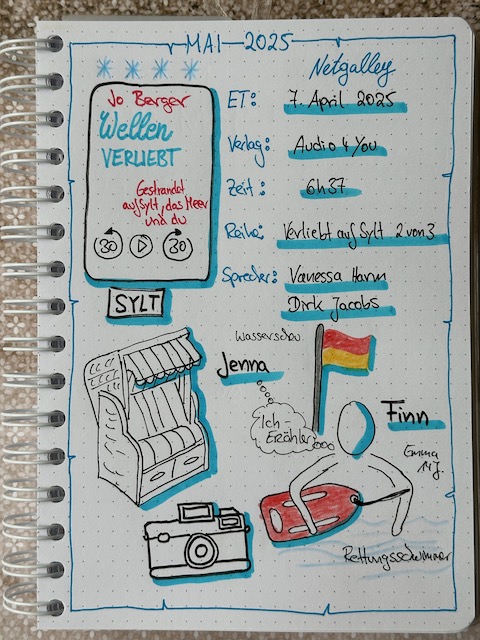 MAI-2025
Netgalley
Jo Berger
Wellen
VERLIEBT
Gestrandet
auf Sylt, das Meer
und du
30 30
ET: 7. April 2025
Verlag: Audio 4 You
Zeit: 6h37
Reihe: Verliebt auf Sylt 2 von 3
Sprecher: Vanessa Hann
Dirk Jacobs
SYLT
Jenna
Ich-
Erzähler
Finn
Emma
14J.
Rettungsschwimmer